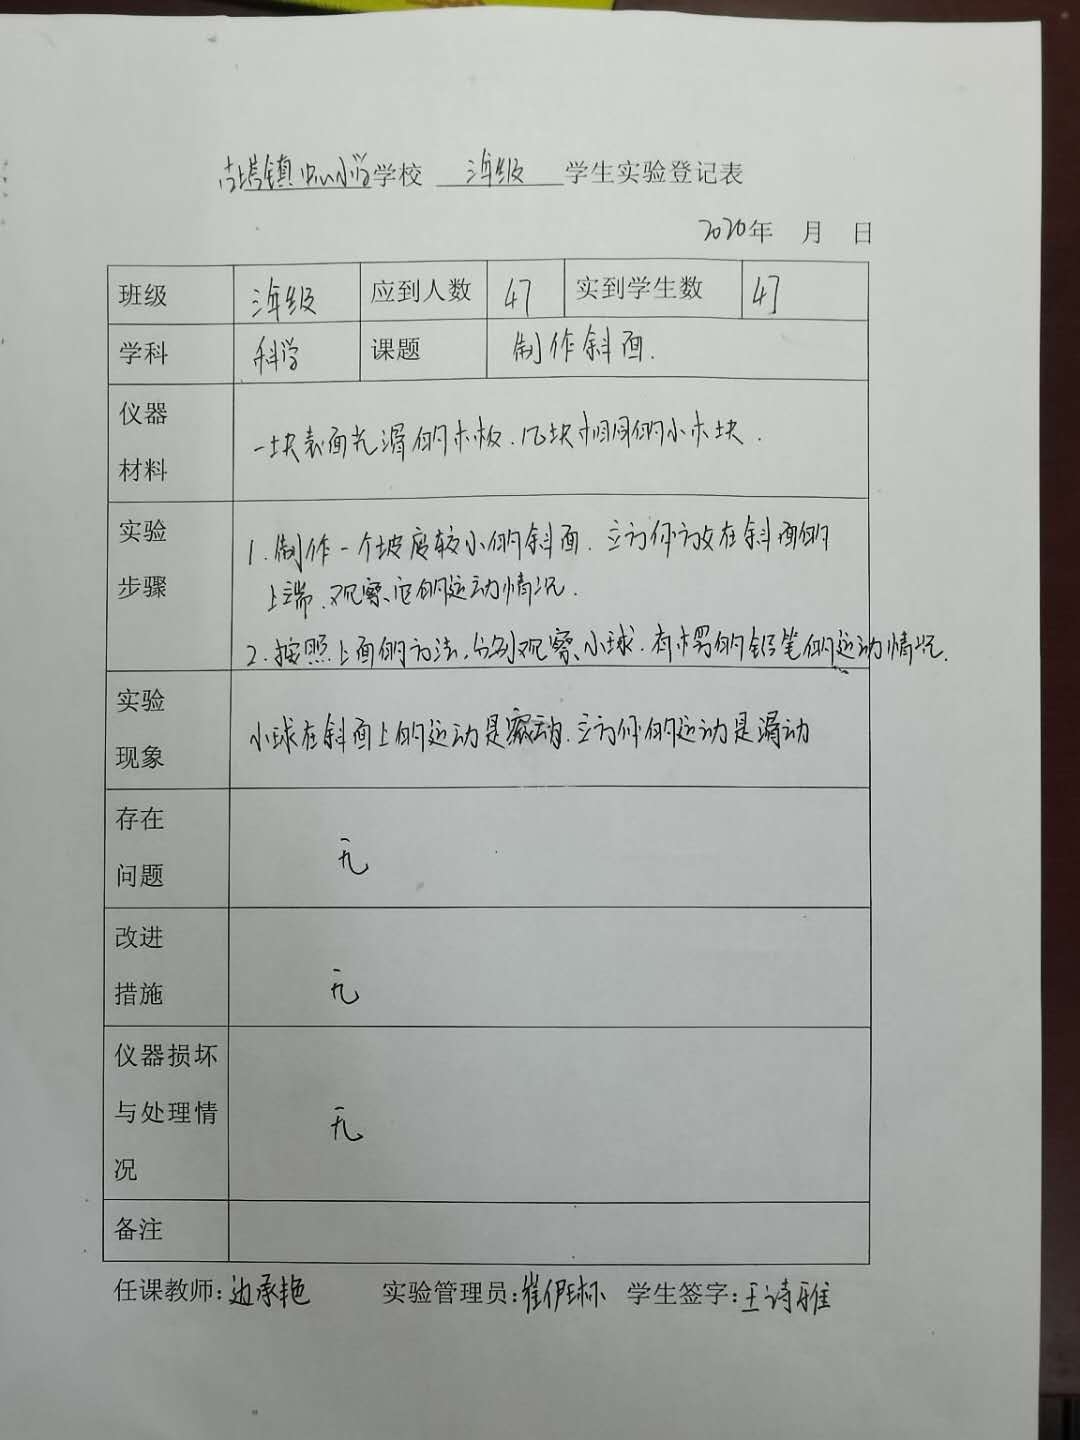 古塔镇中心小学学校 三年级 学生实验登记表
2020年 月 日
班级 三年级 应到人数 47 实到学生数 47
学科 科学 课题 制作斜面.
仪器
材料
一块表面光滑的木板.几块相同的小木块.
实验
步骤
1.制作一个坡度较小的斜面.立方体放在斜面的
上端.观察它的运动情况.
2.按照上面的方法,分别观察小球.有棱的铅笔的运动情况.
实验
现象
小球在斜面上的运动是滚动.立方体的运动是滑动
存在
问题
无
改进
措施
无
仪器损坏
与处理情
况
无
备注
任课教师:边承艳 实验管理员:崔伊琳 学生签字:王诗雅